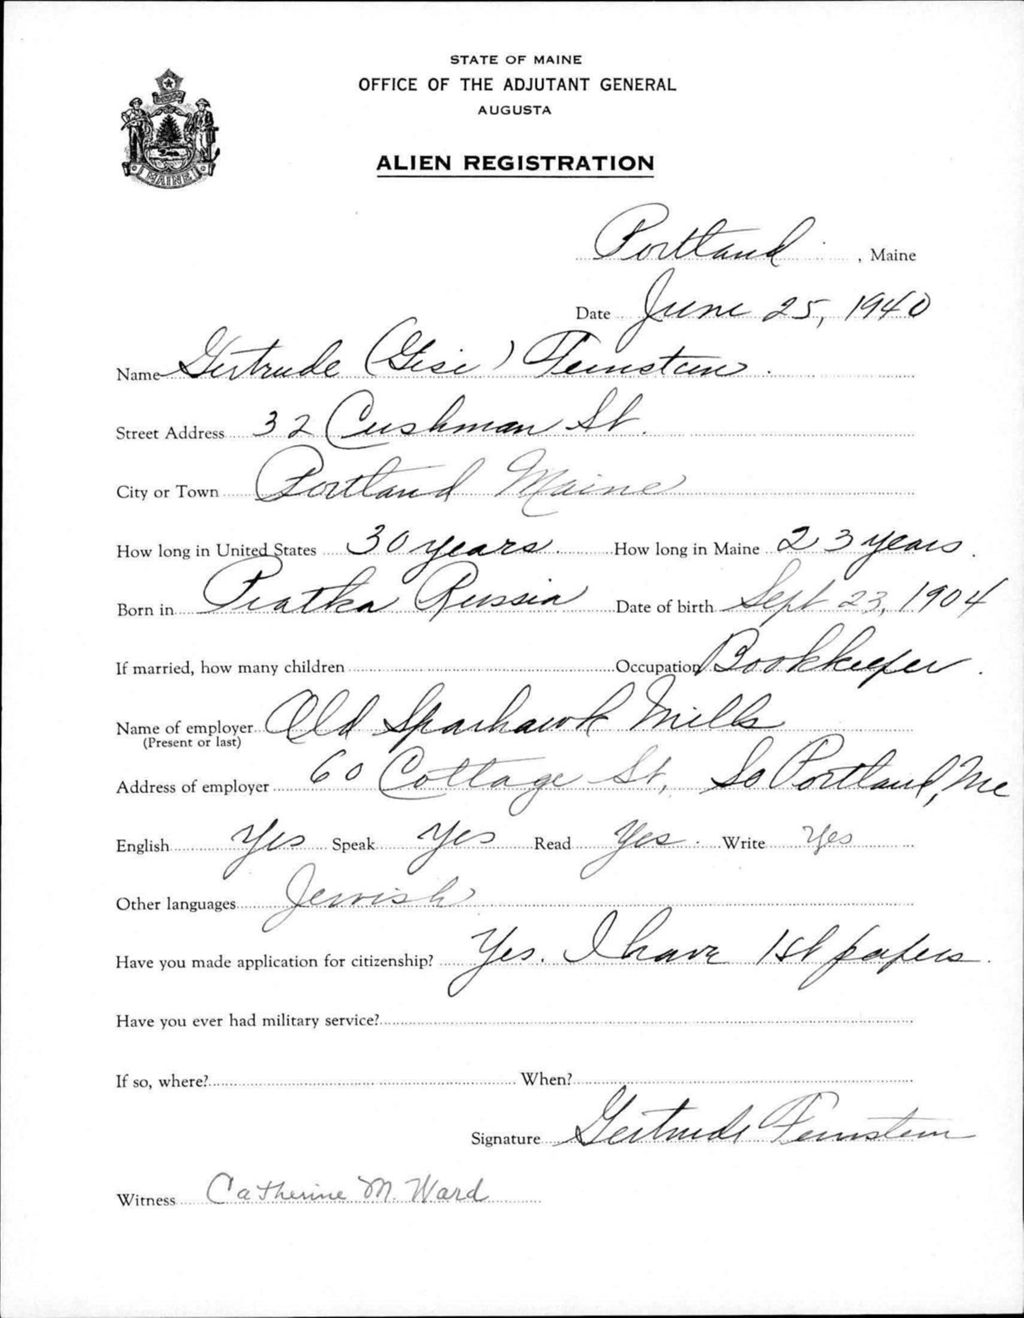 STATE OF MAINE
OFFICE OF THE ADJUTANT GENERAL
AUGUSTA
ALIEN REGISTRATION
MAINE
Portland, Maine
Date June 25, 1940
Name Gertrude (Gisi) Feinstein
Street Address 32 Cushman St.
City or Town Portland Maine
How long in United States 30 years How long in Maine 23 years.
Born in Piatka Russia Date of birth Sept 23, 1904
If married, how many children Occupation Bookkeeper.
Name of employer Old Sparhawk Mills
(Present or last)
Address of employer 60 Cottage St, So Portland, Me
English Yes Speak Yes Read Yes. Write Yes
Other languages Jewish
Have you made application for citizenship? Yes. I have 1st papers.
Have you ever had military service?
If so, where? When?
Signature Gertrude Feinstein
Witness Catherine M. Ward